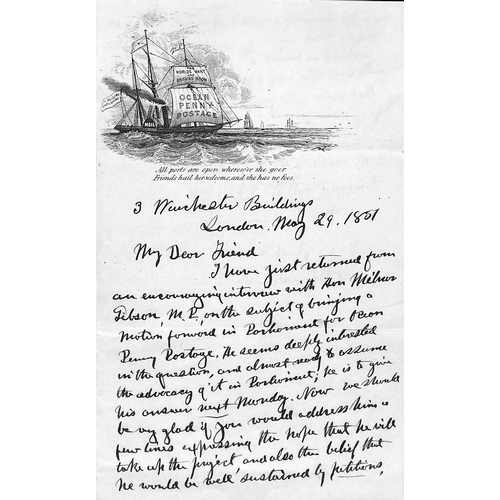 THE
WORLDS WANT
AND
ENGLANDS BOON
OCEAN
PENNY
POSTAGE
All ports are open wheresoe'er she goes
Friends hail her welcome, and she has no foes.
3 Winchester Buildings
London, May 29. 1851
My Dear Friend
I have just returned from
an encouraging interview with Hon Milner
Gibson, M.P., on the subject of bringing a
motion forward in Parliament for Ocean
Penny Postage. He seems deeply interested
in the question, and almost ready to assume
the advocacy of it in Parliament; he is to give
his answer next Monday. Now we should
be very glad if you would address him a
few lines expressing the hope that he will
take up the project and also the belief that
he would be well sustained by petitions,